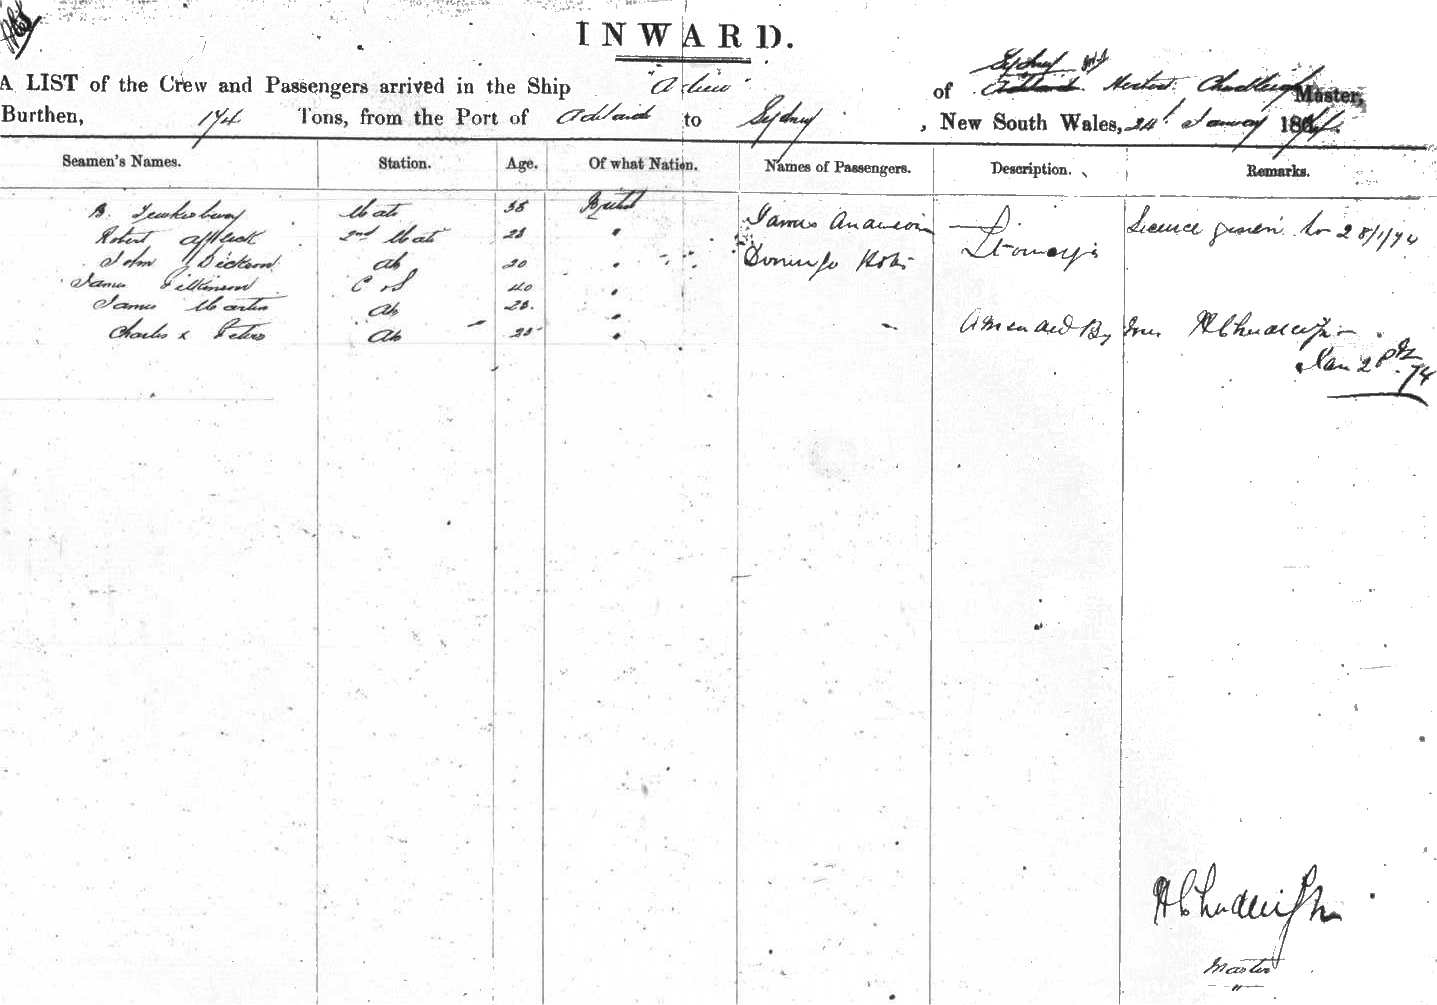 INWARD.
Sydney
A LIST of the Crew and Passengers arrived in the Ship "Adieu" of Adelaide Master,
Burthen, 174 Tons, from the Port of Adelaide to Sydney, New South Wales, 24 January 1874.
Seamen's Names. Station. Age. Of what Nation. Names of Passengers. Description. Remarks.
B. Tewkesbury Mate 38 British James Anderson Licence given to 28/1/74
Robert Affleck 2nd Mate 28 "
John Dickson Ab 20 " Domingo
James Wilkinson C & S 40 "
James Martin Ab 28 "
Charles x Peters Ab 25 " Amended By me H Chudleigh
Jan 28th 74
H Chudleigh
Master